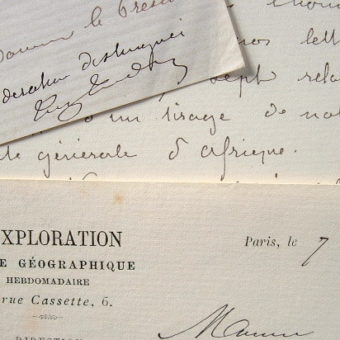 le
dération distinguée
nos lett
sept rela
un tirage de no
te générale d'afrique.
XPLORATION
E GÉOGRAPHIQUE
HEBDOMADAIRE
rue Cassette, 6.
Paris, le 7
DIRECTION